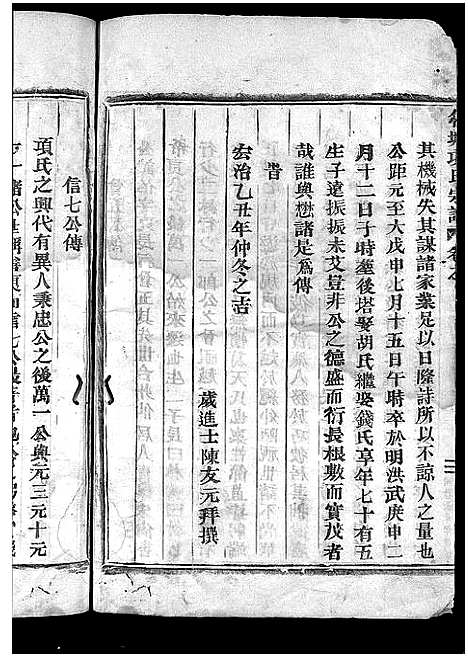 項氏宗譜
其機械失其謀諸家業是以日隆詩所以不諒人之量也
公距元至大戊申七月十五日午時卒於明洪武庚申二
月十二日子時塟後塔娶胡氏繼娶錢氏享年七十有五
生子達振振未艾豈非公之德盛而衍長根敷而實茂者
哉誰與懋諸是為傳
旹
宏治乙丑年仲冬之吉
歲進士陳友元拜撰
信七公傳
項氏之興代有異人秉忠公之後萬一公與元三元十元